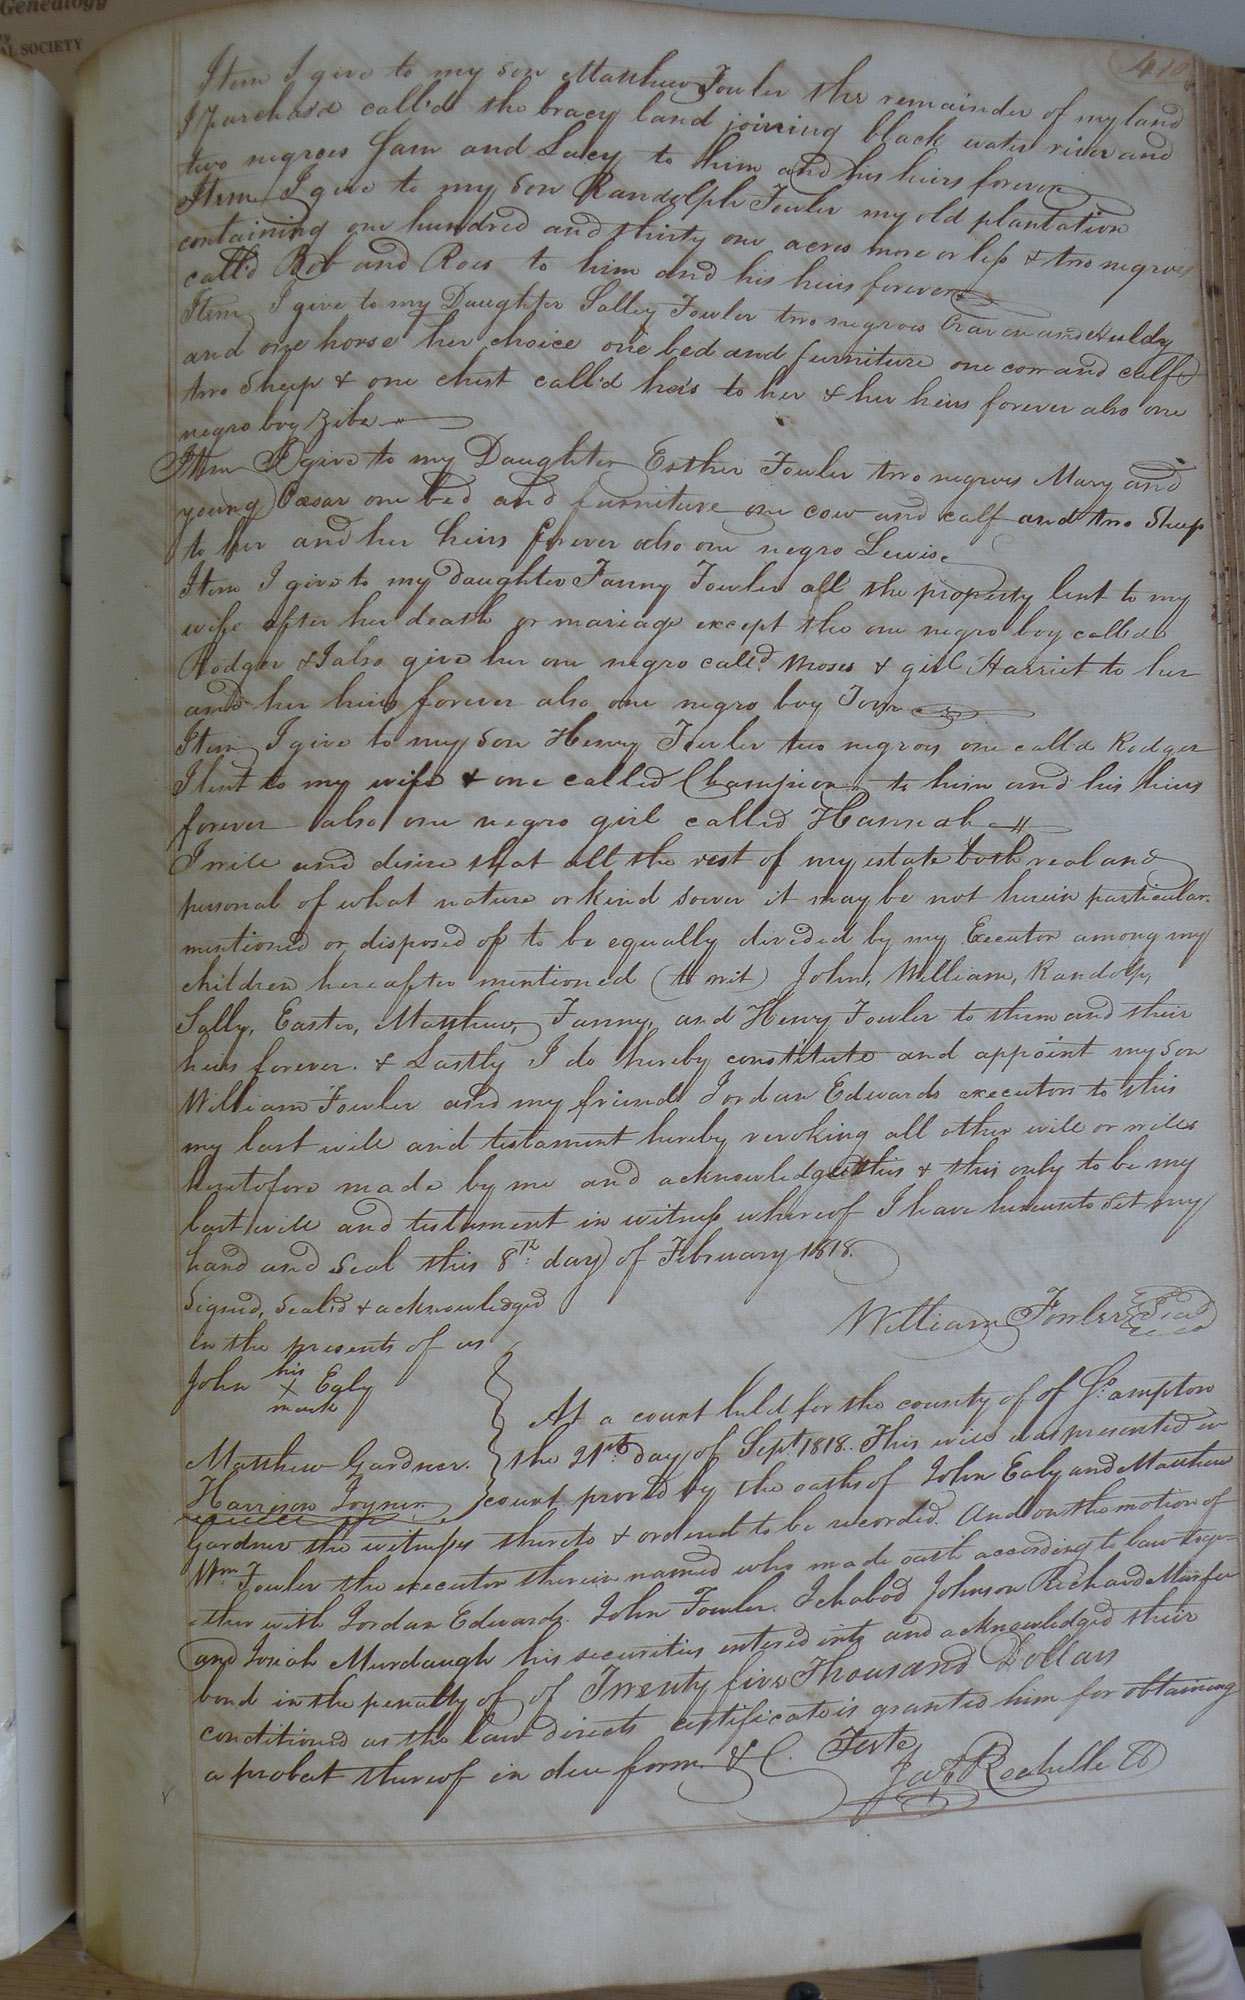 Genealogy
AL SOCIETY
410
Item I give to my son Matthew Fowler the remainder of my land
I Purchas'd call'd the bracy land joining black water river and
two negroes Sam and Lucy to him and his heirs forever
Item I give to my Son Randolph Fowler my old plantation
containing one hundred and thirty one acres more or less & two negroes
call'd Bob and Rose to him and his heirs forever
Item I give to my Daughter Salley Fowler two negroes and Huldy
and one horse her choice one bed and furniture one cow and calf
two Sheep & one chest call'd hers to her & her heirs forever also one
negro boy Zebe
Item I give to my Daughter Esther Fowler two negroes Mary and
young Cæsar one bed and furniture one cow and calf and two Sheep
to her and her heirs forever also one negro Lewis
Item I give to my daughter Fanny Fowler all the property lent to my
wife after her death or mariage except the one negro boy called
Rodger & I also give her one negro call'd Moses & girl Harriet to her
and her heirs forever also one negro boy Tom
Item I give to my Son Henry Fowler two negroes one call'd Rodger
I lent to my wife & one called Champion to him and his heirs
forever also one negro girl called Hannah
I will and desire that all the rest of my estate both real and
personal of what nature or kind soever it may be not herein particular.
mentioned or disposed of to be equally divided by my Executor among my
children hereafter mentioned (to wit) John, William, Randolp,
Sally, Easter, Matthew, Fanny, and Henry Fowler to them and their
heirs forever. & Lastly I do hereby constitute and appoint my son
William Fowler and my friend Jordan Edwards executors to this
my last will and testament hereby revoking all other will or wills
heretofore made by me and acknowledge this & this only to be my
last will and testament in witness whereof I have hereunto set my
hand and Seal this 8th day of February 1818.
Signed, Seal'd & acknowledged
in the presents of us
William Fowler Seal
his
John X Ealy
mark
Matthew Gardner.
Harrison Joyner
At a court held for the county of of So.ampton
the 21st day of Sept. 1818. This will was presented in
court proved by the oaths of John Ealy and Matthew
Gardner the witnesses thereto & ordered to be recorded. And on the motion of
Wm. Fowler the executor therein named who made oath according to law toge-
ther with Jordan Edwards. John Fowler. Ichabod Johnson Richard Murfee
and Josiah Murdaugh his securities entered into and acknowledged their
bond in the penalty of of Twenty five Thousand Dollars
conditioned as the law directs certificate is granted him for obtaining
a probat thereof in due form &C. Teste
Jas Rochelle CC